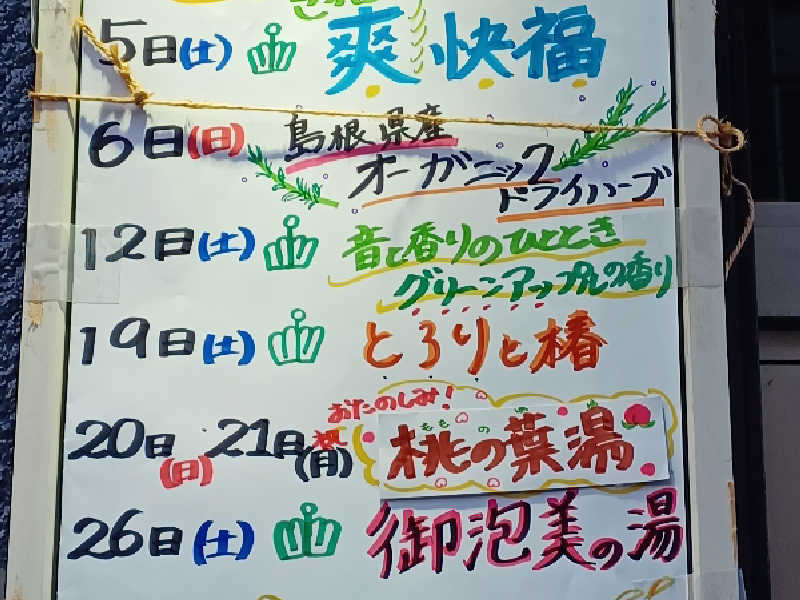 5日(土) 爽快福
6日(日) 島根県産
オーガニック
ドライハーブ
12日(土) 音と香りのひととき
グリーンアップルの香り
19日(土) とろりと椿
おたのしみ!
もも の
20日(日) 21日(月)祝 桃の葉湯
26日(土) 御泡美の湯